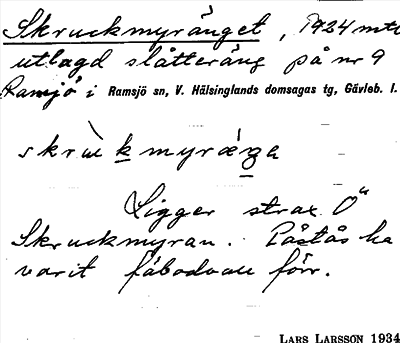 Skruckmyränget, 1924 mtr
utlagd slåtteräng på nr 9
Ramsjö i Ramsjö sn, V. Hälsinglands domsagas tg, Gävleb. l.
Ligger strax Ö
Skruckmyran. Påstås ha
varit fäbodvall förr.
LARS LARSSON 1934